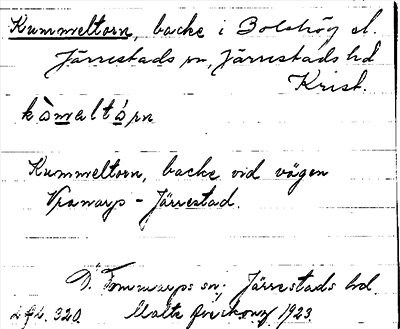 Kummeltorn, backe i Bolshög el.
Järrestads sn, Järrestads hd
Krist.
kòmaltórn
Kummeltorn, backe vid vägen
Vranarp - Järrestad.
D. Tommarps sn. Järrestads hd.
320. Malte 1923.